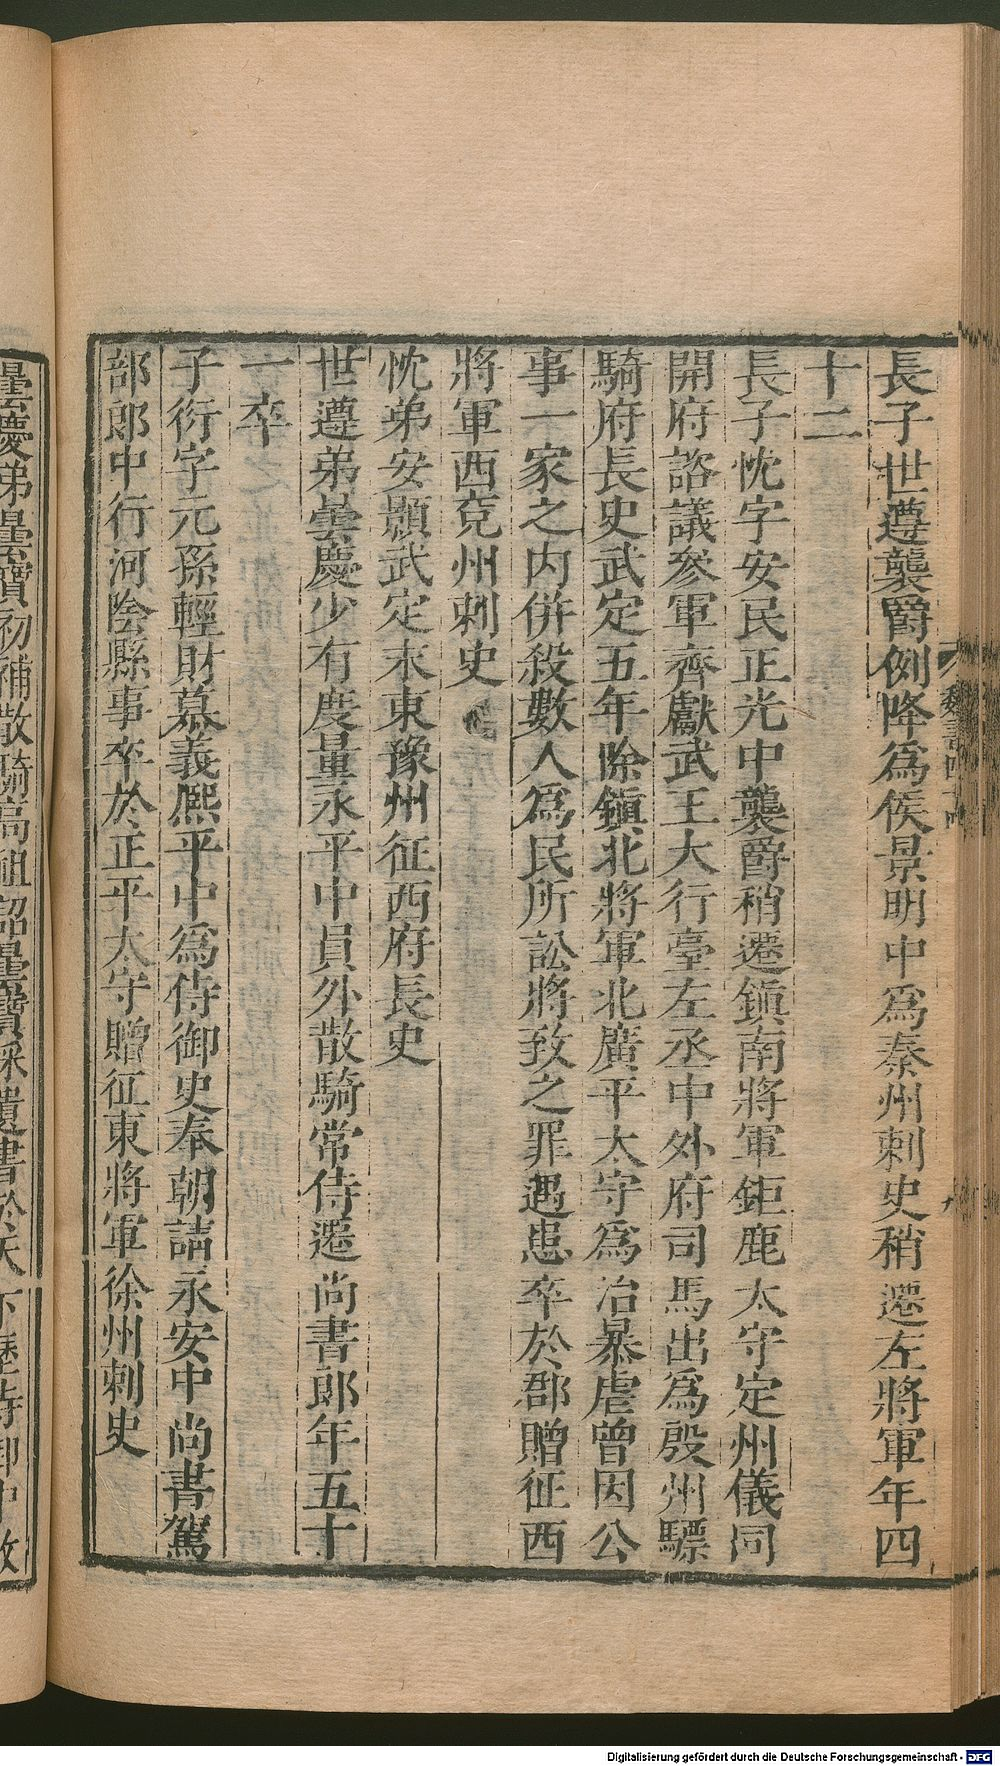 長子世遵襲爵例降爲侯景明中爲秦州刺史稍遷左將軍年四
十二
長子忱字安民正光中襲爵稍遷鎮南將軍鉅鹿太守定州儀同
開府諮議參軍齊獻武王大行臺左丞中外府司馬出爲殷州驃
騎府長史武定五年除鎮北將軍北廣平太守爲治暴虐曾因公
事一家之内併殺數人爲民所訟將致之罪遇患卒於郡贈征西
將軍西兗州刺史
忱弟安顥武定末東豫州征西府長史
世遵弟曇慶少有度量永平中員外散騎常侍遷尚書郎年五十
一卒
子衍字元孫輕財慕義熙平中爲侍御史奉朝請永安中尚書駕
部郎中行河陰縣事卒於正平太守贈征東將軍徐州刺史
曇慶弟曇寶初補散騎高祖詔曇寶採遺書於天下歷侍御中散
Digitalisierung gefördert durch die Deutsche Forschungsgemeinschaft - DFG